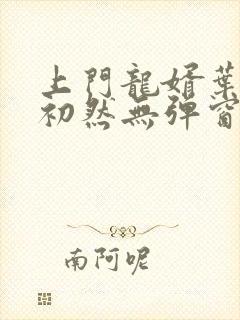 上門龍婿葉
初然無彈窗
南阿呢